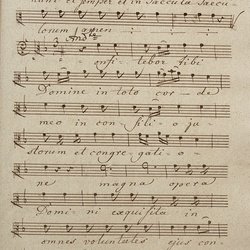 nunc et semper et in saecula saecu-
lorum amen
And.te
onfi - tebor tibi
Domine in toto cor - de
meo in con - fili - o ju -
storum et congre - gati - o -
ne magna opera
Domi - ni exquisita in
omnes voluntates ejus con-